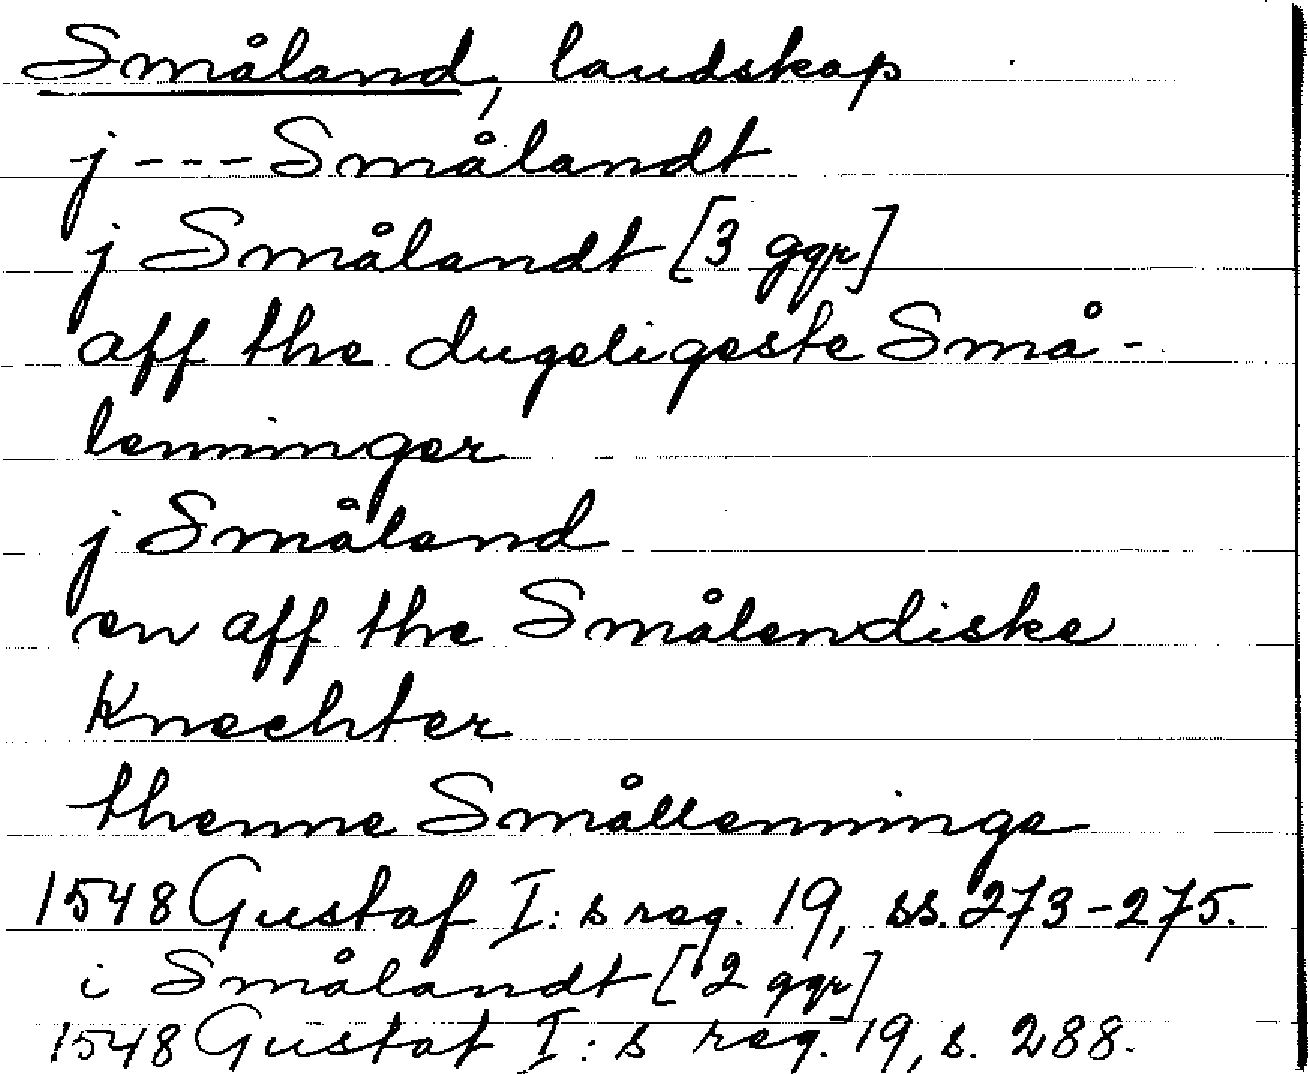 Småland, landskap
j ---Smålandt
j Smålandt [3 ggr]
aff the dugeligeste Små-
lenninger
j Småland
en aff the Smålendiske
Knechter
thenne Smållenninge
1548 Gustaf I:s reg. 19, ss. 273-275.
i Smålandt [2 ggr]
1548 Gustaf I:s reg. 19, s. 288.